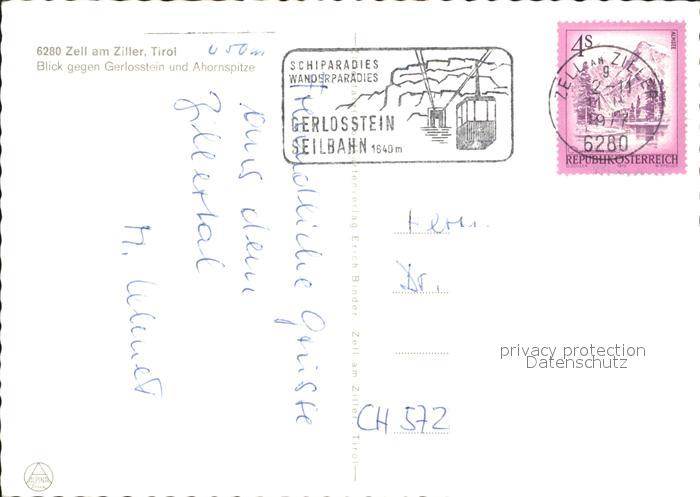 6280 Zell am Ziller, Tirol
Blick gegen Gerlosstein und Ahornspitze
SCHIPARADIES
WANDERPARADIES
GERLOSSTEIN
SEILBAHN 1640m
ZELL AM ZILLER
1977
6280
4S
ALMSEE
REPUBLIK ÖSTERREICH
Freundliche Grüsse
aus dem
Zillertal
M.
Erich Binder Zell am Ziller Tirol
Herrn
Dr.
privacy protection
Datenschutz
CH 572
ALPINA